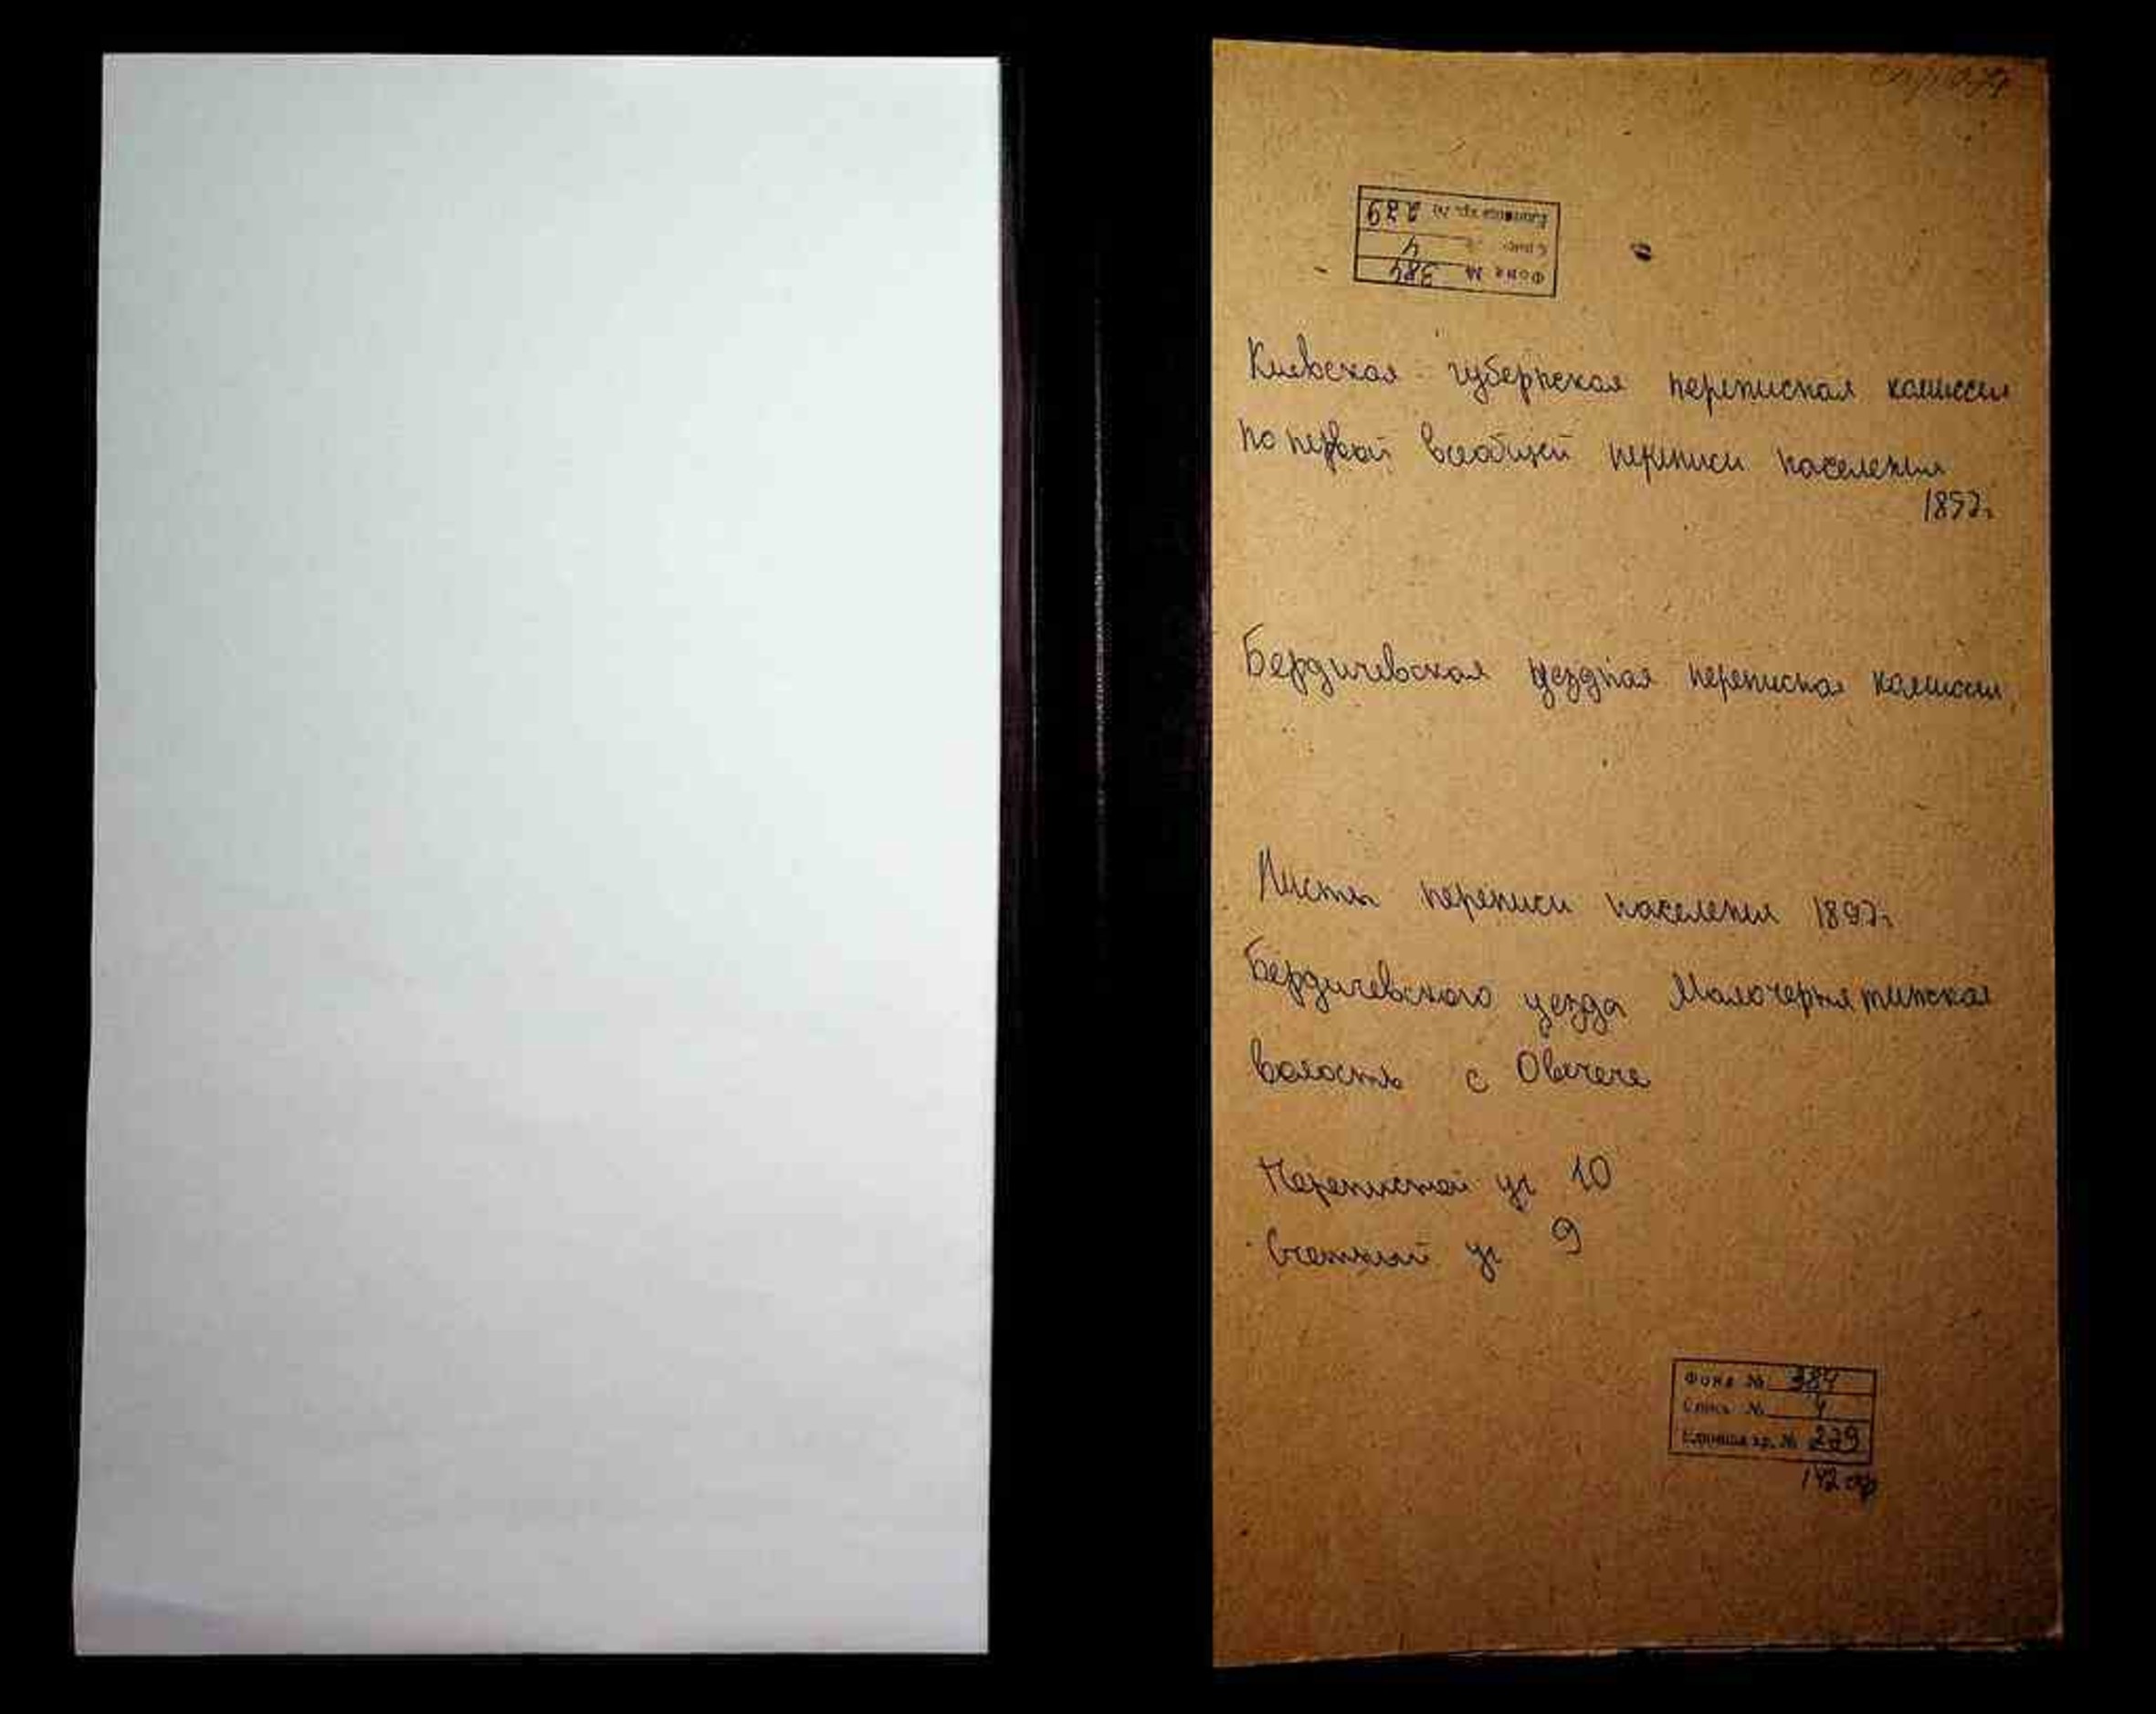 Единица хр. № 229
Опись № 4
Фонд № 384
Киевская губернская переписная комиссия
по первой всеобщей переписи населения
1897г
Бердичевская уездная переписная комиссия
Листы переписи населения 1897г
Бердичевского уезда Малочернятинская
волость с Овечече
Переписной уч 10
Счетный уч 9
Фонд № 384
Опись № 4
Единица хр. № 229
142 стр